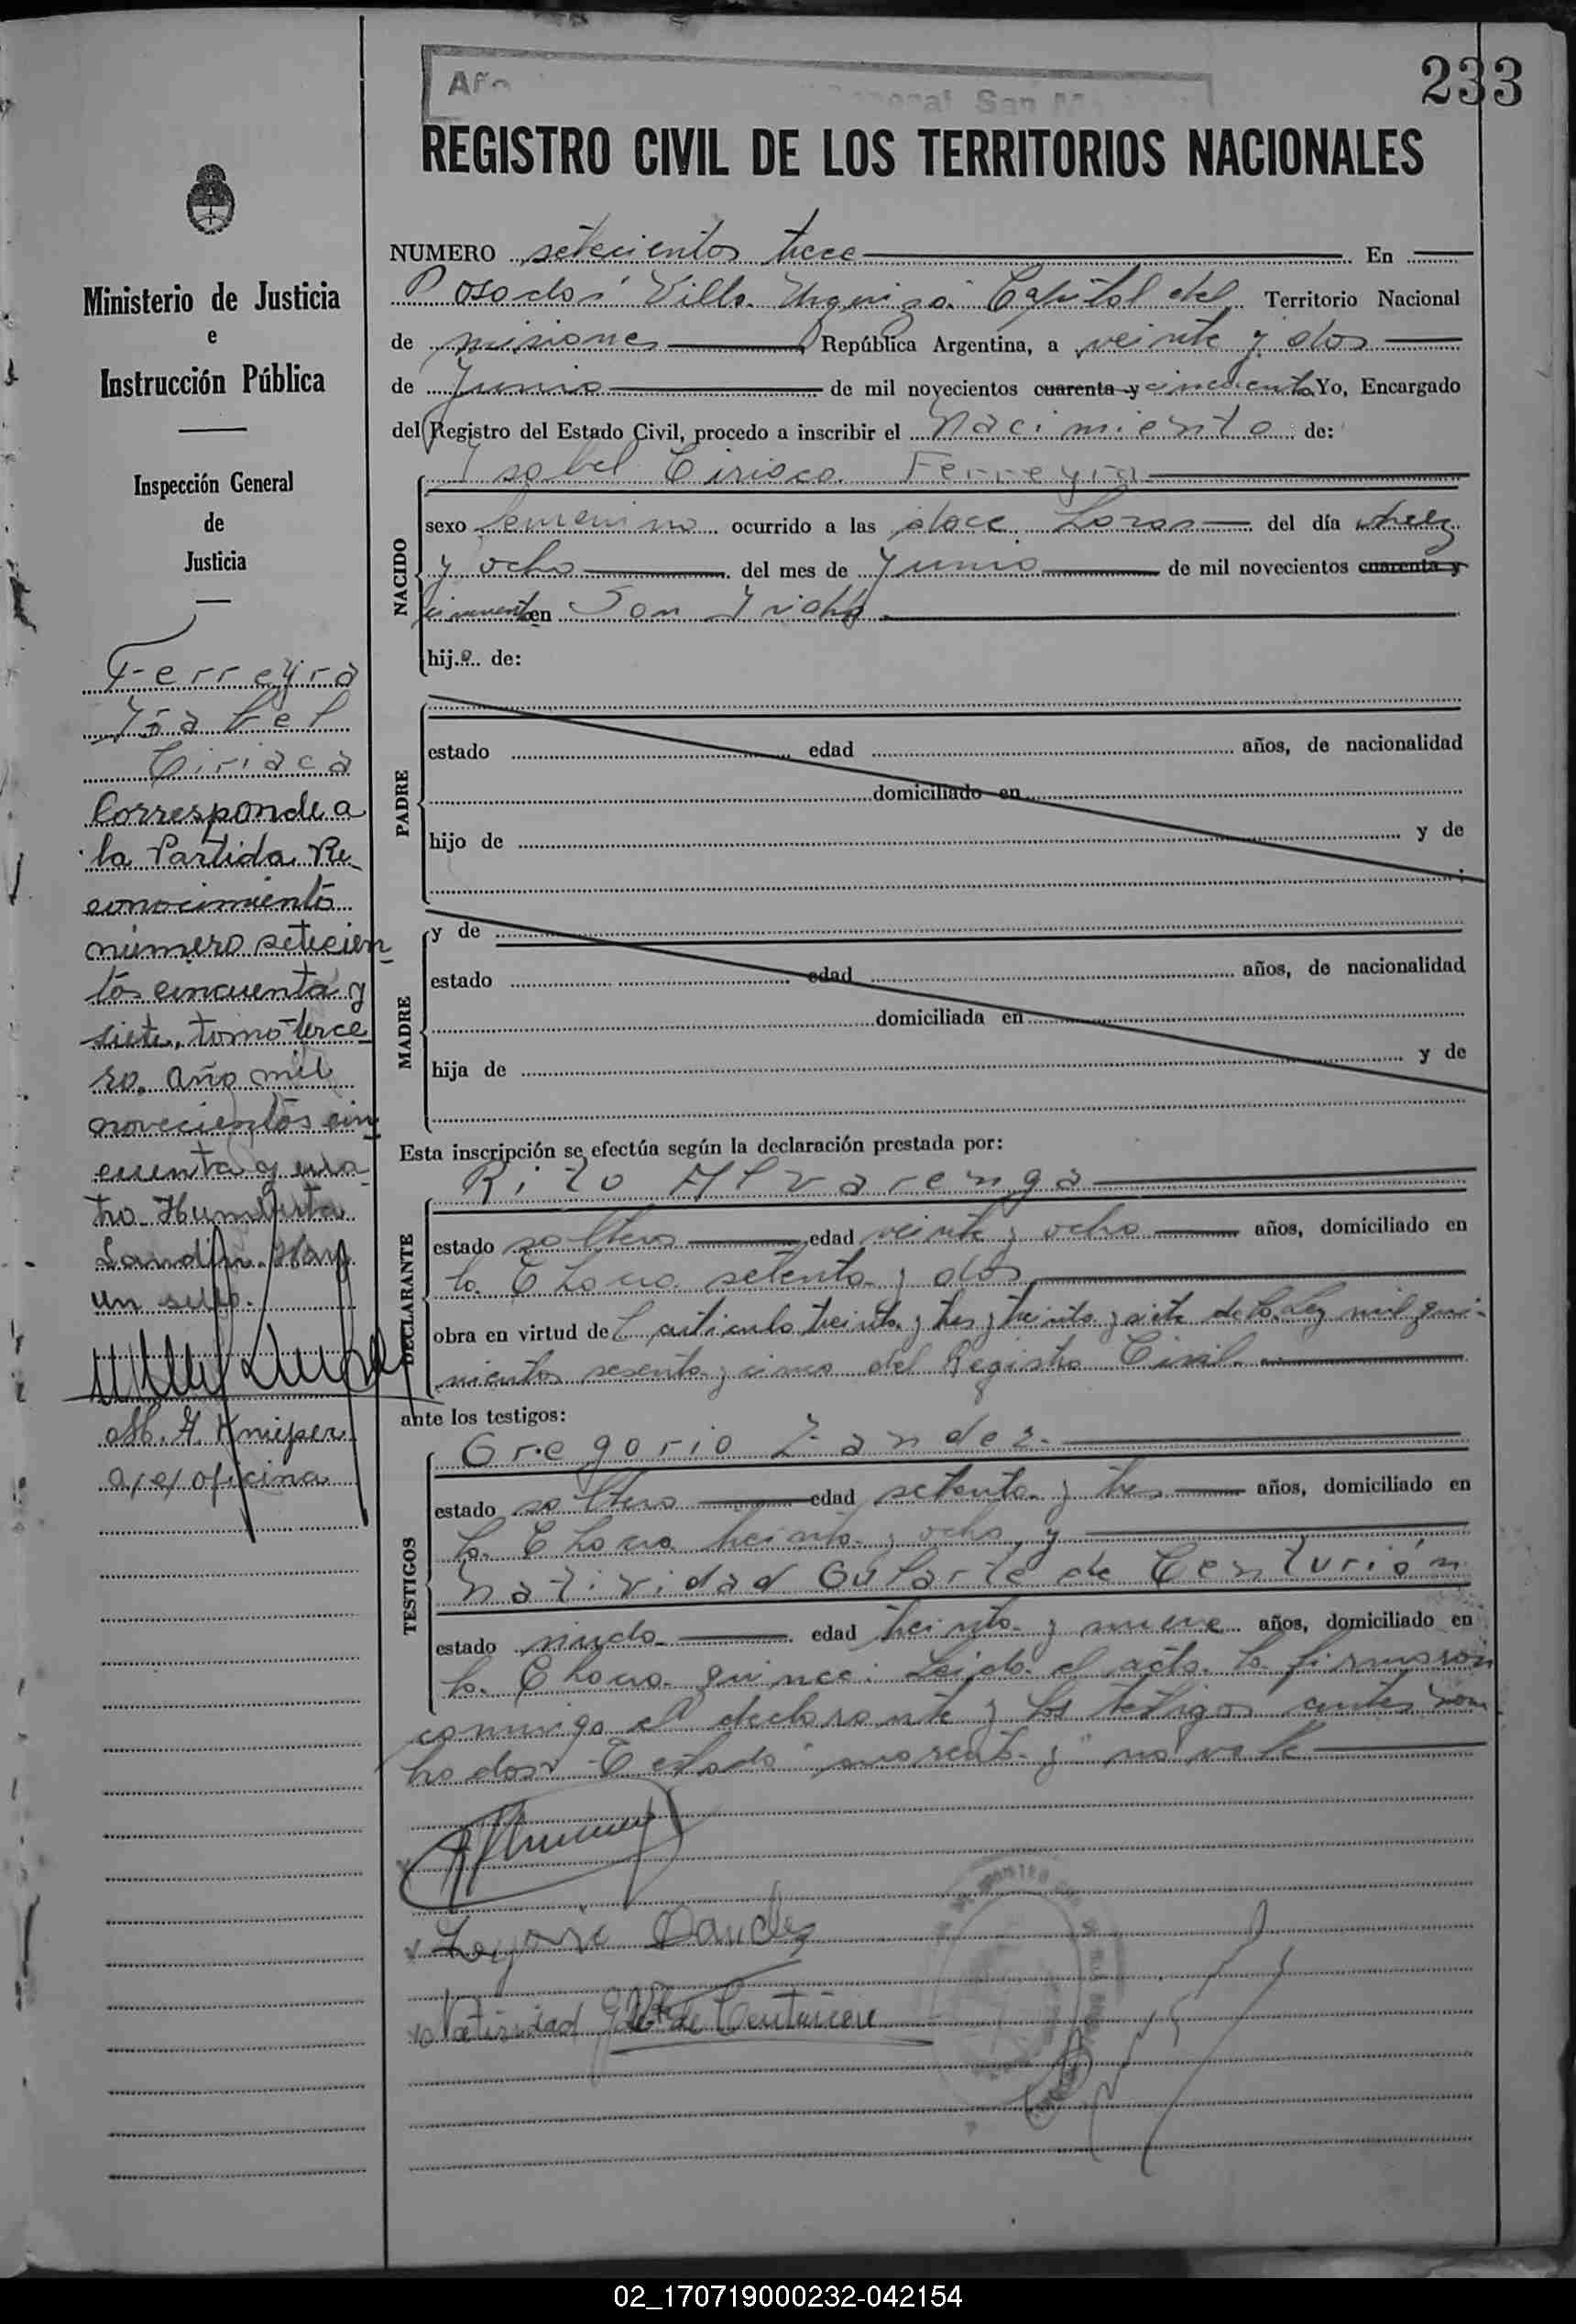 Año General San M
233
REGISTRO CIVIL DE LOS TERRITORIOS NACIONALES
Ministerio de Justicia
e
Instrucción Pública
Inspección General
de
Justicia
Ferreyra
Isabel
Ciriaca
Corresponde a
la Partida Re
conocimiento
número setecien
tos cincuenta y
siete, tomo terce
ro. año mil
novecientos cin
cuenta y cua
tro Humberto
Landin. Hay
un sello.
M. G. Knieper
a/e/ oficina
NUMERO setecientos trece En
Posadas Villa Urquiza Capital del Territorio Nacional
de misiones República Argentina, a veinte y dos
de Junio de mil novecientos cuarenta y cincuenta Yo, Encargado
del Registro del Estado Civil, procedo a inscribir el Nacimiento de:
NACIDO
Isabel Ciriaca Ferreyra
sexo femenino ocurrido a las doce horas del día diez
y ocho del mes de Junio de mil novecientos cuarenta y
cincuenta en San Isidro
hija de:
PADRE
estado edad años, de nacionalidad
domiciliado en
hijo de y de
MADRE
y de
estado edad años, de nacionalidad
domiciliada en
hija de y de
Esta inscripción se efectúa según la declaración prestada por:
DECLARANTE
Rito Alvarenga
estado soltero edad veinte y ocho años, domiciliado en
la Chacra setenta y dos
obra en virtud del articulo treinta y tres y treinta y siete de la Ley mil qui-
nientos sesenta y cinco del Registro Civil.
ante los testigos:
TESTIGOS
Gregorio Zandez
estado soltero edad setenta y tres años, domiciliado en
la Chacra treinta y ocho y
Natividad Gularte de Centurión
estado viuda edad treinta y nueve años, domiciliado en
la Chacra quince: Leída el acta la firmaron
conmigo el declarante y los testigos antes nom
brados. Testado "cuarenta y" no vale
Natividad de Centurion
02_170719000232-042154